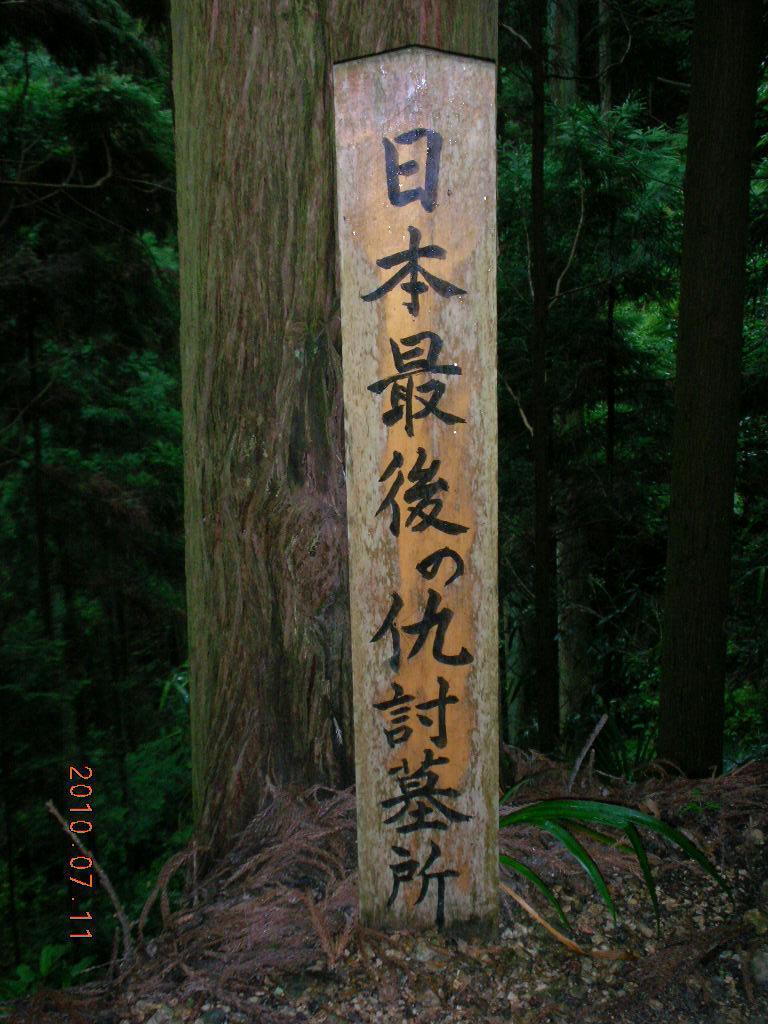 日本最後の仇討墓所
2010.07.11